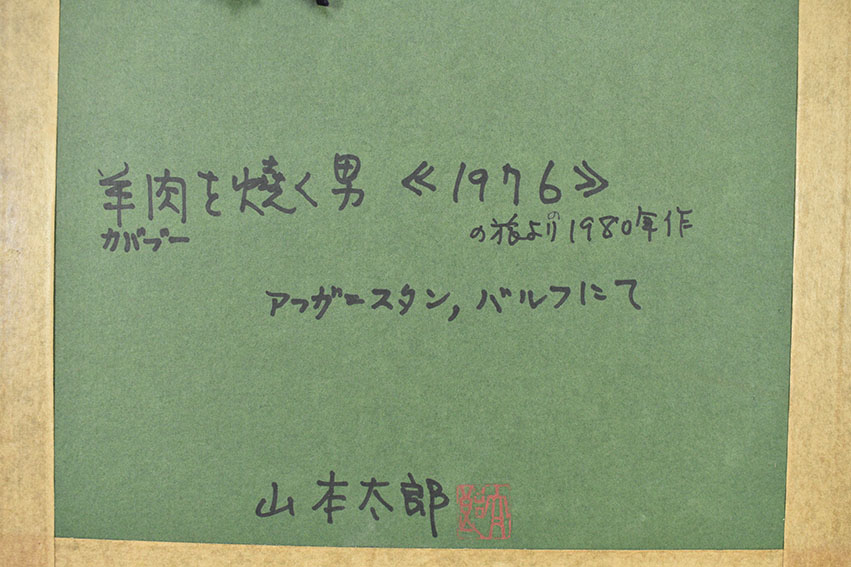 羊肉を燒く男 ≪1976≫
カバブー
の旅より 1980年作
アフガニスタン, バルフにて
山本太郎